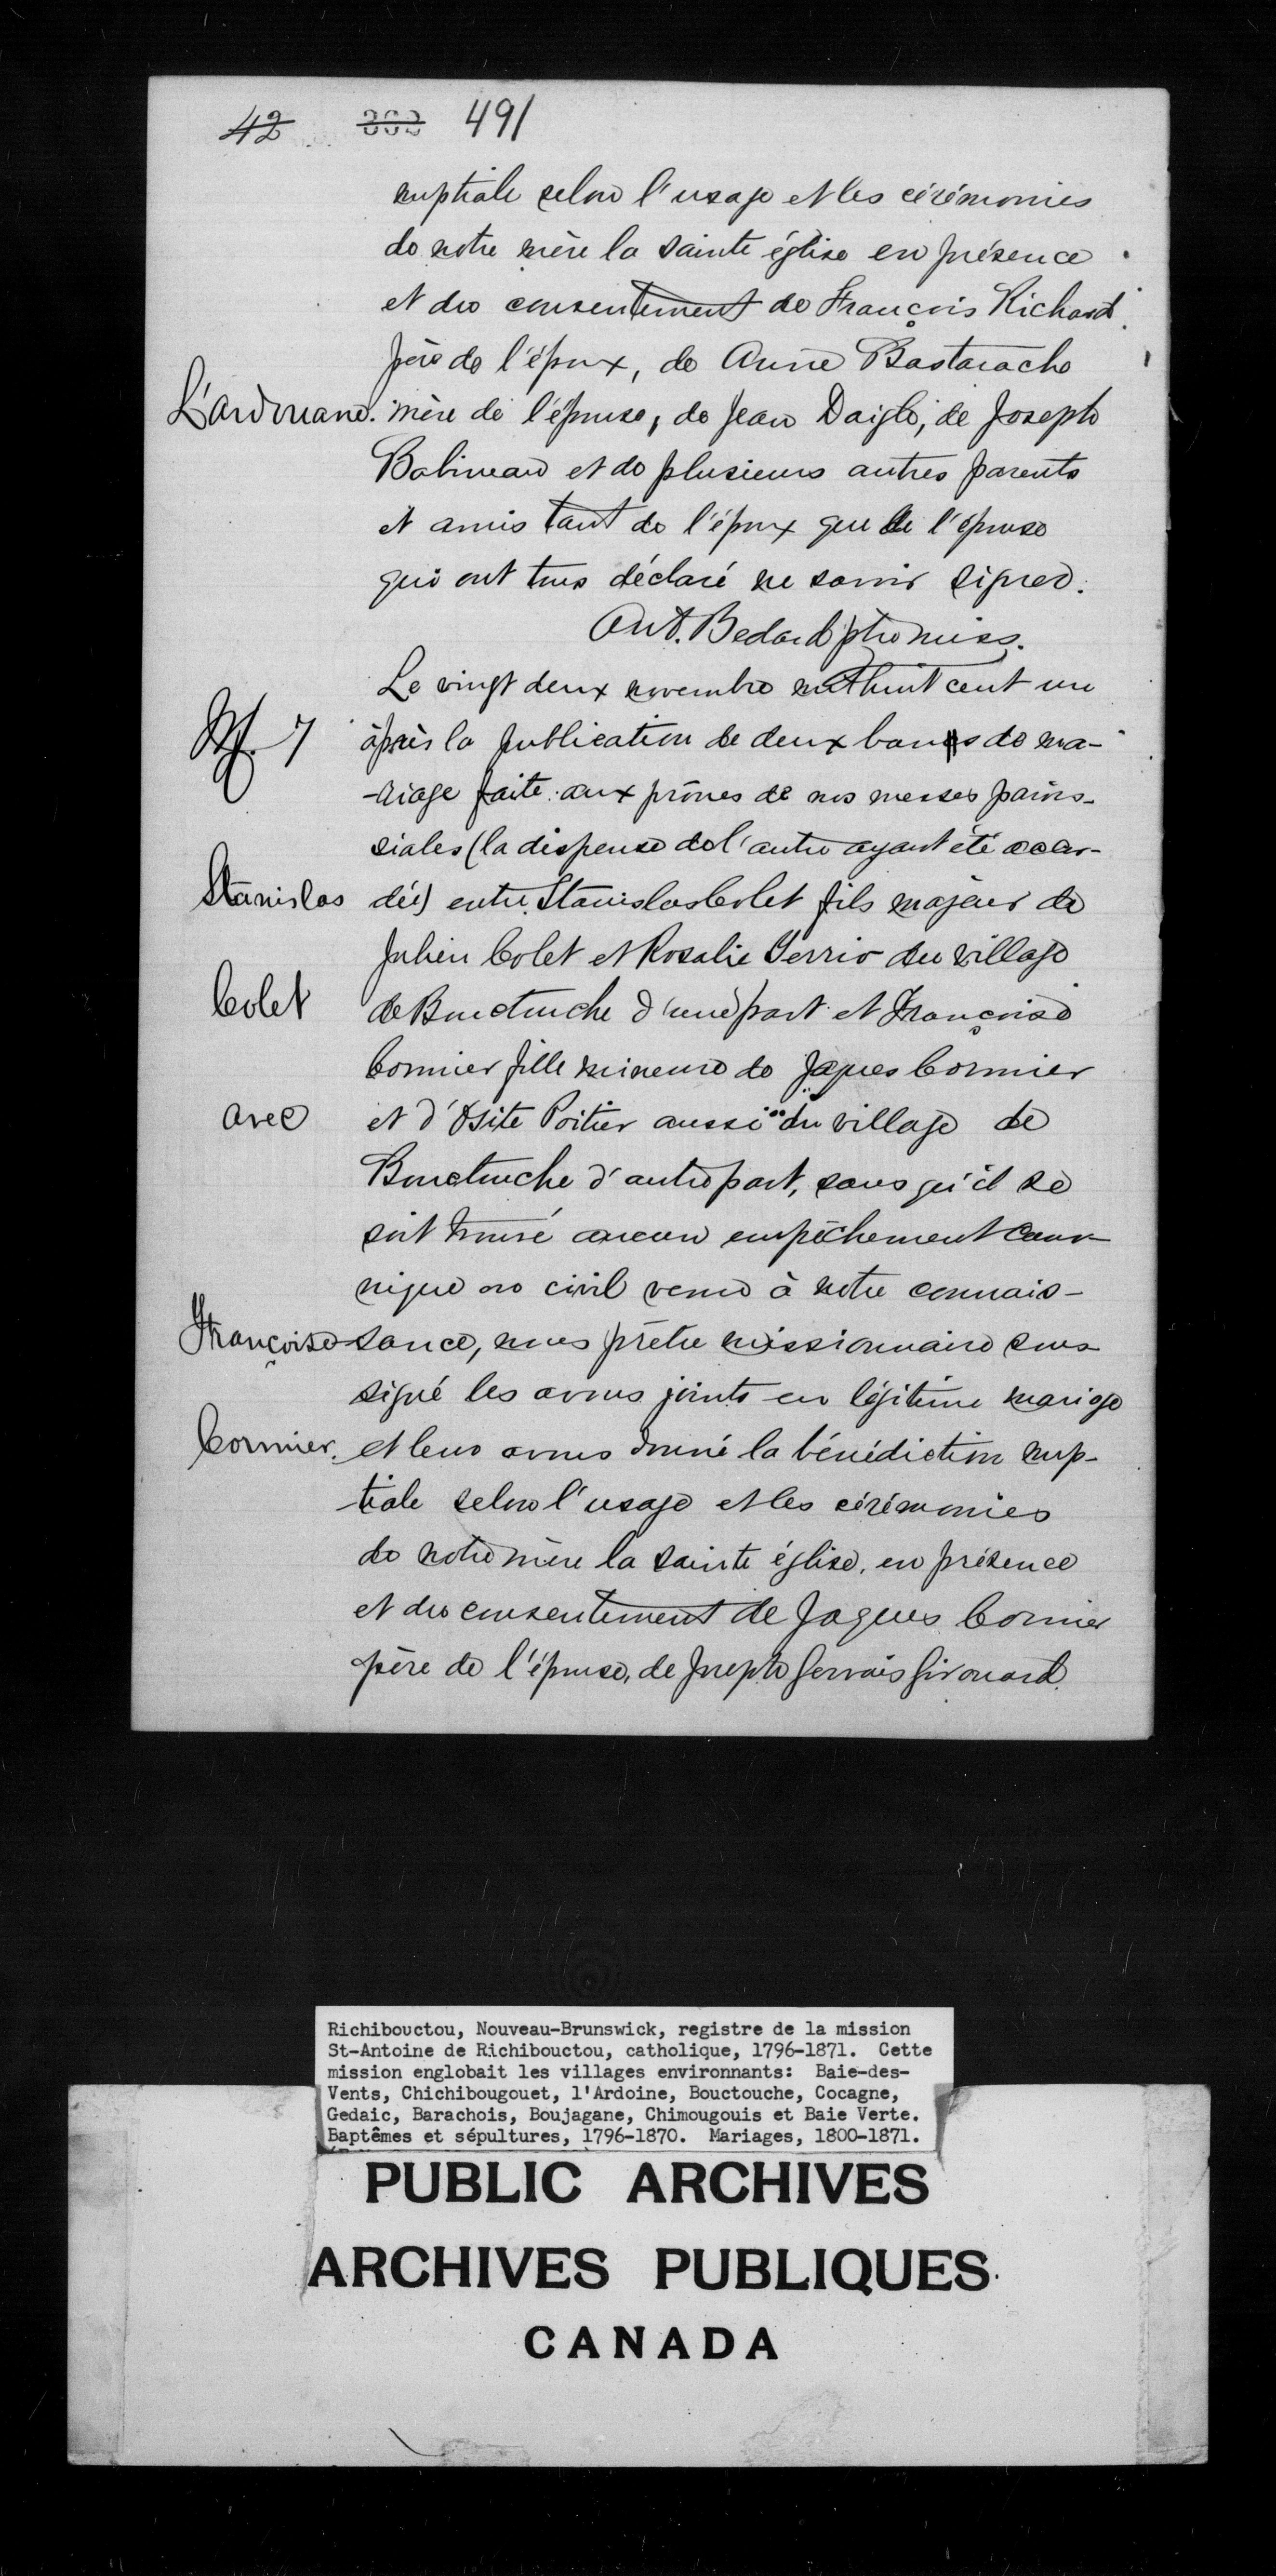 42 382 491
nuptiale selon l'usage et les cérémonies
de notre mère la sainte église en présence
et du consentement de François Richard
père de l'époux, de Anne Bastarache
L'ardouane. mère de l'épouse, de Jean Daigle, de Joseph
Babineau et de plusieurs autres parents
et amis tant de l'époux que de l'épouse
qui ont tous déclaré ne savoir signer.
Ant. Bedard ptre miss.
Le vingt deux novembre mil huit cent un
M. 7 après la publication de deux bans de ma-
-riage faite aux prônes de nos messes parois-
siales (la dispense de l'autre ayant été accor-
Stanislas dée) entre Stanislas Colet fils majeur de
Julien Colet et Rosalie Terrio du village
Colet de Bouctouche d'une part et Françoise
Cormier fille mineure de Jaques Cormier
avec et d'Osite Poitier aussi du village de
Bouctouche d'autre part, sans qu'il se
soit trouvé aucun empêchement cano-
nique ou civil venu à notre connais-
Françoise sance, nous prêtre missionnaire sous-
signé les avons joints en légitime mariage
Cormier. et leur avons donné la bénédiction nup-
tiale selon l'usage et les cérémonies
de notre mère la sainte église, en présence
et du consentement de Jaques Cormier
père de l'épouse, de Joseph Gervais Girouard
Richibouctou, Nouveau-Brunswick, registre de la mission
St-Antoine de Richibouctou, catholique, 1796-1871. Cette
mission englobait les villages environnants: Baie-des-
Vents, Chichibougouet, l'Ardoine, Bouctouche, Cocagne,
Gedaic, Barachois, Boujagane, Chimougouis et Baie Verte.
Baptêmes et sépultures, 1796-1870. Mariages, 1800-1871.
PUBLIC ARCHIVES
ARCHIVES PUBLIQUES
CANADA